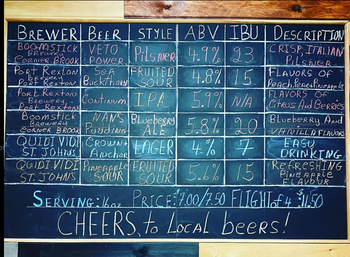 BREWER BEER STYLE ABV IBU DESCRIPTION
BOOMSTICK VETO PILSNER 4.9% 23 CRISP, ITALIAN
BREWERY POWER PILSNER
CORNER BROOK
PORT REXTON SEA FRUITED 4.8% 15 FLAVORS OF
BREWERY BUCKTHORN SOUR
PORT REXTON CONTINUUM IPA 5.9% N/A FLAVORS OF
BREWERY CITRUS AND BERRIES
PORT REXTON
BOOMSTICK NAN'S BLUEBERRY 5.8% 20 BLUEBERRY AND
BREWERY PUDDING ALE VANILLA FLAVORS
CORNER BROOK
QUIDI VIDI CROWN + LAGER 4% 7 EASY
ST. JOHNS ANCHOR DRINKING
QUIDI VIDI PINEAPPLE FRUITED 5.6% 15 REFRESHING
ST. JOHNS SOUR SOUR PINEAPPLE
FLAVOUR
SERVING: 16oz PRICE: $7.00/7.50 FLIGHT of 4 $11.50
CHEERS, to Local beers!